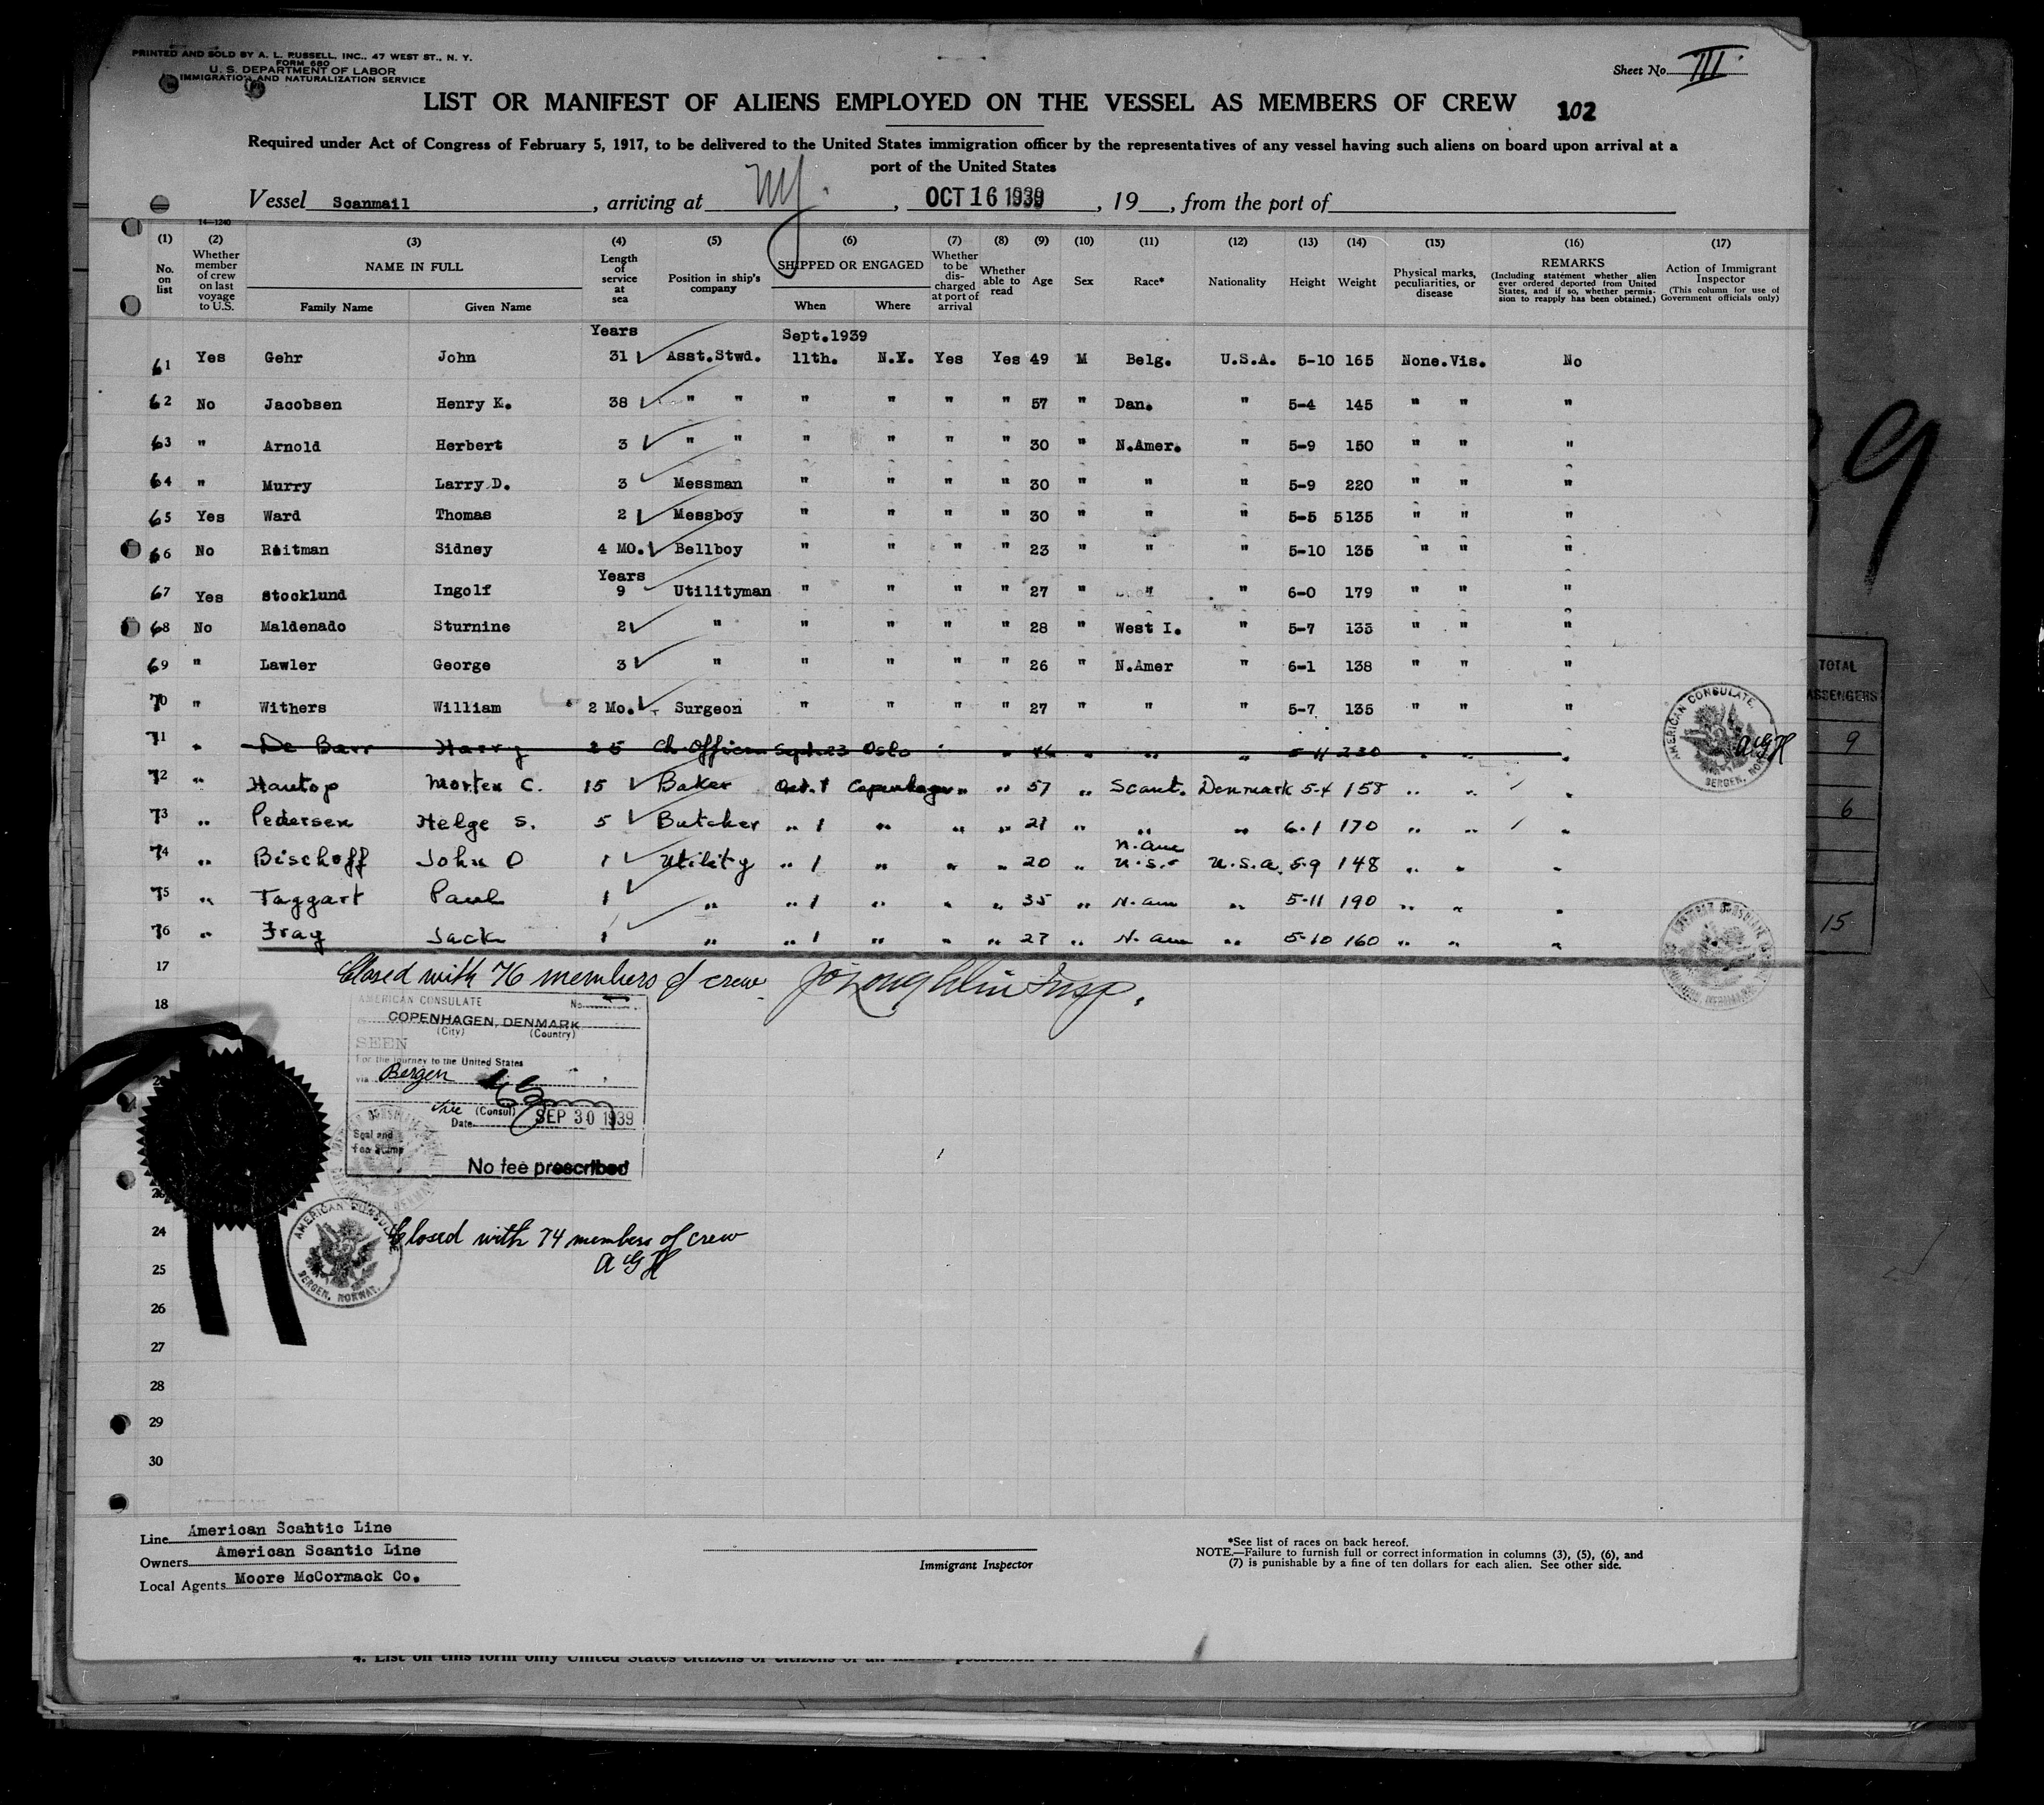 PRINTED AND SOLD BY A. L. RUSSELL, INC., 47 WEST ST., N. Y.
FORM 680
U. S. DEPARTMENT OF LABOR
IMMIGRATION AND NATURALIZATION SERVICE
Sheet No. III
LIST OR MANIFEST OF ALIENS EMPLOYED ON THE VESSEL AS MEMBERS OF CREW 102
Required under Act of Congress of February 5, 1917, to be delivered to the United States immigration officer by the representatives of any vessel having such aliens on board upon arrival at a
port of the United States
Vessel Scanmail, arriving at NY., OCT 16 1939, 19 , from the port of
14—1240
(1) (2) (3) (4) (5) (6) (7) (8) (9) (10) (11) (12) (13) (14) (15) (16) (17)
No. on list
Whether member of crew on last voyage to U.S.
NAME IN FULL
Family Name Given Name
Length of service at sea
Position in ship's company
SHIPPED OR ENGAGED
When Where
Whether to be discharged at port of arrival
Whether able to read
Age Sex Race* Nationality Height Weight
Physical marks, peculiarities, or disease
REMARKS
(Including statement whether alien ever ordered deported from United States, and if so, whether permission to reapply has been obtained.)
Action of Immigrant Inspector
(This column for use of Government officials only)
Years Sept.1939
61 Yes Gehr John 31 Asst.Stwd. 11th. N.Y. Yes Yes 49 M Belg. U.S.A. 5-10 165 None.Vis. No
62 No Jacobsen Henry K. 38 " " " " " " 57 " Dan. " 5-4 145 " " "
63 " Arnold Herbert 3 " " " " " " 30 " N.Amer. " 5-9 150 " " "
64 " Murry Larry D. 3 Messman " " " " 30 " " " 5-9 220 " " "
65 Yes Ward Thomas 2 Messboy " " " " 30 " " " 5-5 5135 " " "
66 No Reitman Sidney 4 MO. Bellboy " " " " 23 " " " 5-10 135 " " "
Years
67 Yes Stocklund Ingolf 9 Utilityman " " " " 27 " " " 6-0 179 " " "
68 No Maldenado Sturnine 2 " " " " " 28 " West I. " 5-7 135 " " "
69 " Lawler George 3 " " " " " 26 " N.Amer " 6-1 138 " " "
70 " Withers William 2 Mo. Surgeon " " " " 27 " " " 5-7 135 " " "
71 " De Barr Harry 25 Ch. Officer Sept. 23 Oslo " " 46 " " " 5-11 230 " " "
72 " Hautop Morten C. 15 Baker Oct. 1 Copenhagen " " 57 " Scant. Denmark 5-4 158 " " "
73 " Pedersen Helge S. 5 Butcher " 1 " " " 21 " " " 6-1 170 " " "
N. Am
74 " Bischoff John O 1 Utility " 1 " " " 20 " U.S. U.S.A. 5-9 148 " " "
75 " Taggart Paul 1 " " 1 " " " 35 " N. Am " 5-11 190 " " "
76 " Fray Jack 1 " " 1 " " " 27 " N. Am " 5-10 160 " " "
AMERICAN CONSULATE BERGEN, NOR
AGH
17 Closed with 76 members of crew. J O'Loughlin Insp.
18
AMERICAN CONSULATE No.
COPENHAGEN, DENMARK
(City) (Country)
SEEN
For the journey to the United States
via Bergen
Vice (Consul)
Date SEP 30 1939
Seal and
Fee Stamp
No fee prescribed
AMERICAN CONSULATE BERGEN, NORWAY.
24 Closed with 74 members of crew
AGH
25
26
27
28
29
30
Line American Scahtic Line
Owners American Scantic Line
Local Agents Moore McCormack Co.
Immigrant Inspector
*See list of races on back hereof.
NOTE.—Failure to furnish full or correct information in columns (3), (5), (6), and
(7) is punishable by a fine of ten dollars for each alien. See other side.
4. List on this form only United States citizens or citizens of an
TOTAL
PASSENGERS
9
6
15
39